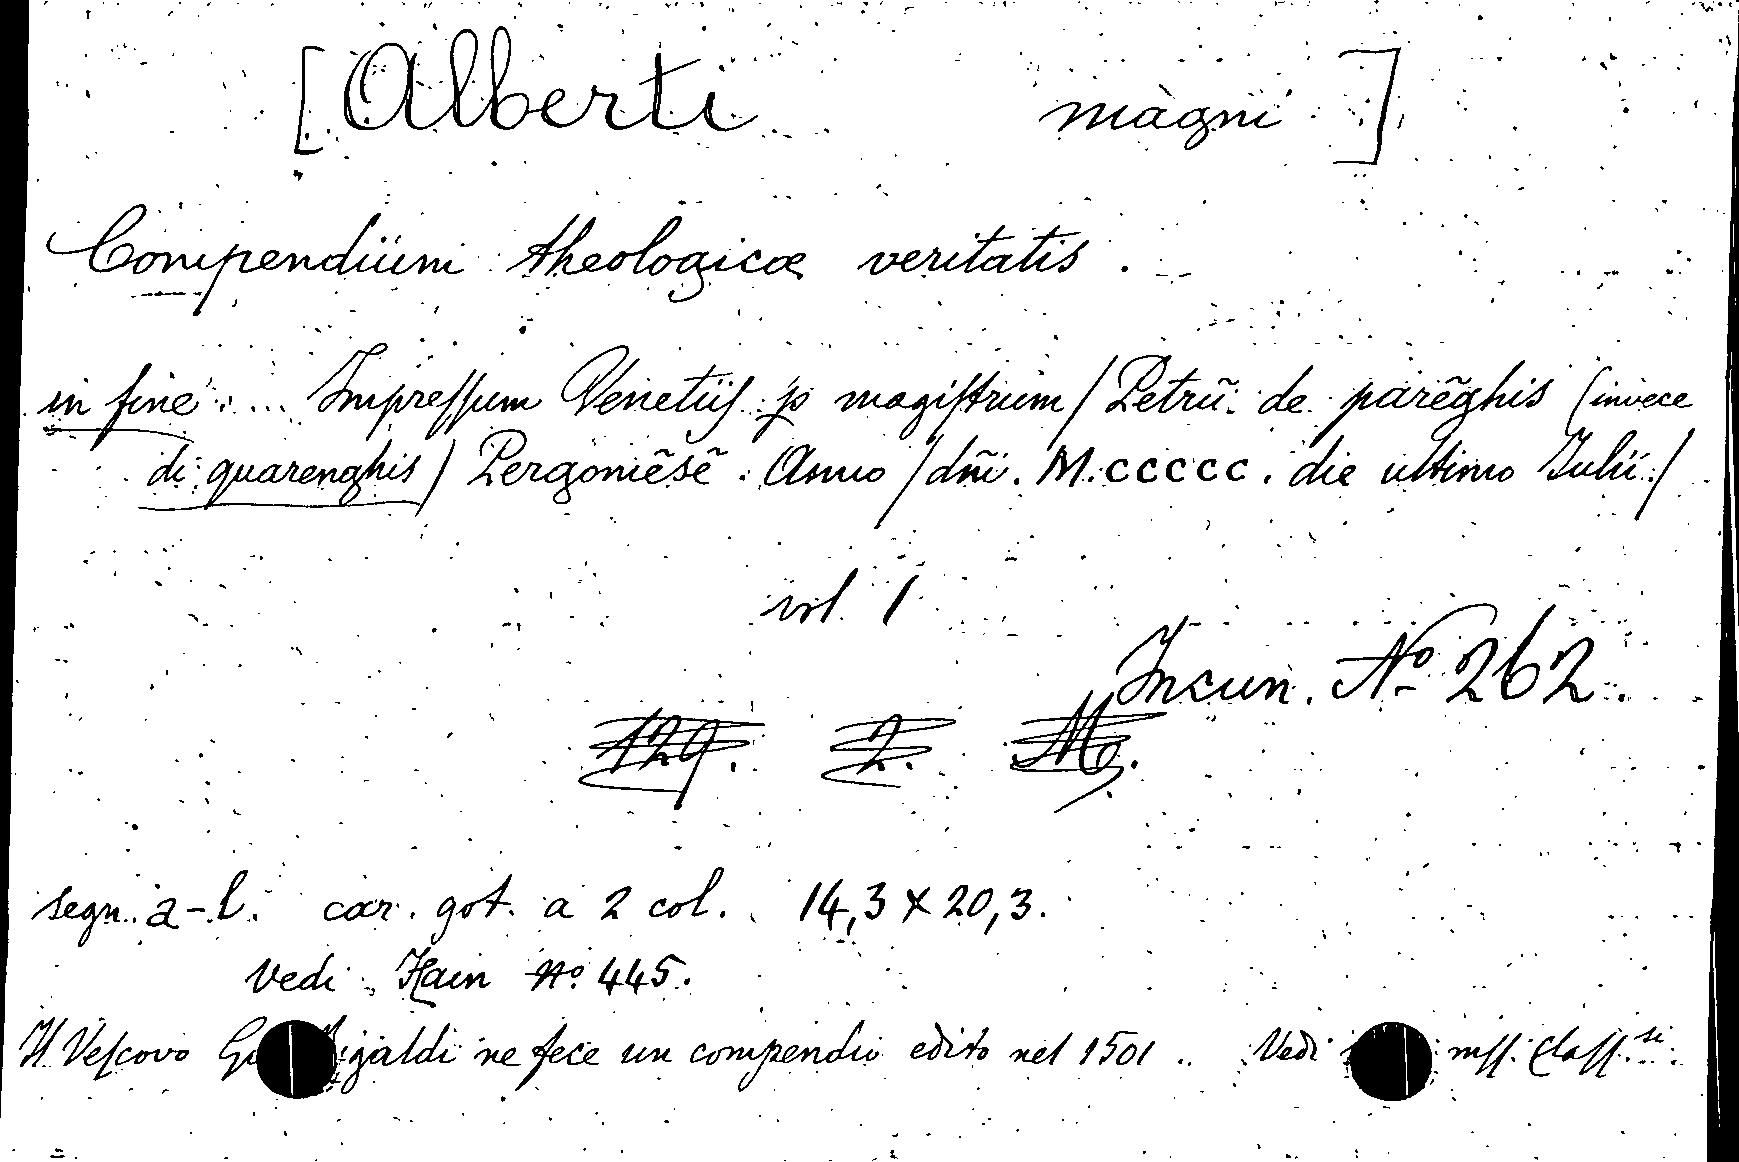 [Alberti magni]
Compendium theologicæ veritatis.
in fine: ... Impressum Venetiis p magistrum / Petrũ de parẽghis (invece
di quarenghis) Pergomẽsẽ. Anno / dñi. M.ccccc. die ultimo Iulii. /
vol. 1
Incun. Nº 262.
129. 2.
segn. a-l. car. got. a 2 col. 14,3 x 20,3.
Vedi Hain nº 445.
Il Vescovo ne fece un compendio edito nel 1501.. Vedi mss. Class.si